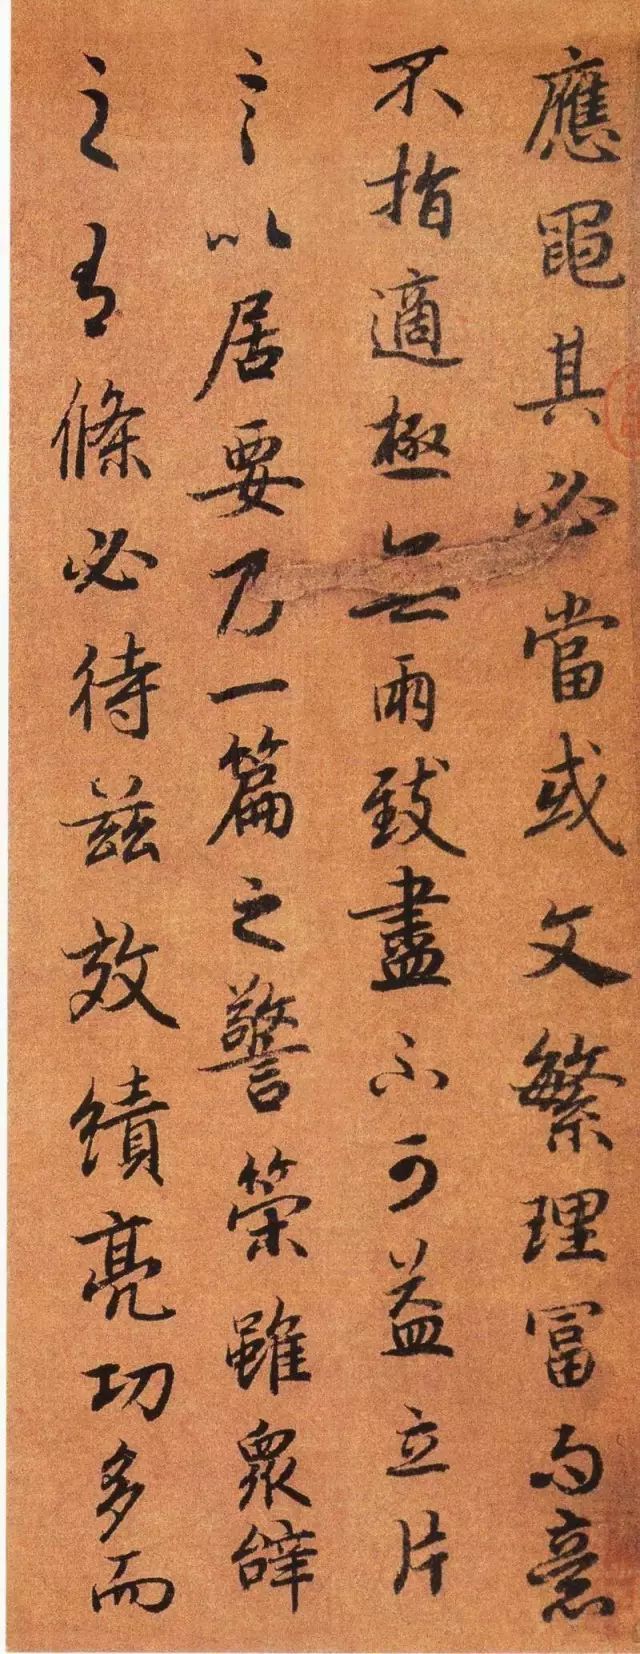 應黽其必當或文繁理冨而意
不指適極無兩致盡不可益立片
言以居要乃一篇之警策雖衆辞
之有條必待茲效績亮功多而